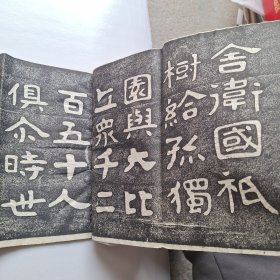 舍衛國祇
樹給孤獨
園與大比
丘眾千二
百五十人
俱尒時世